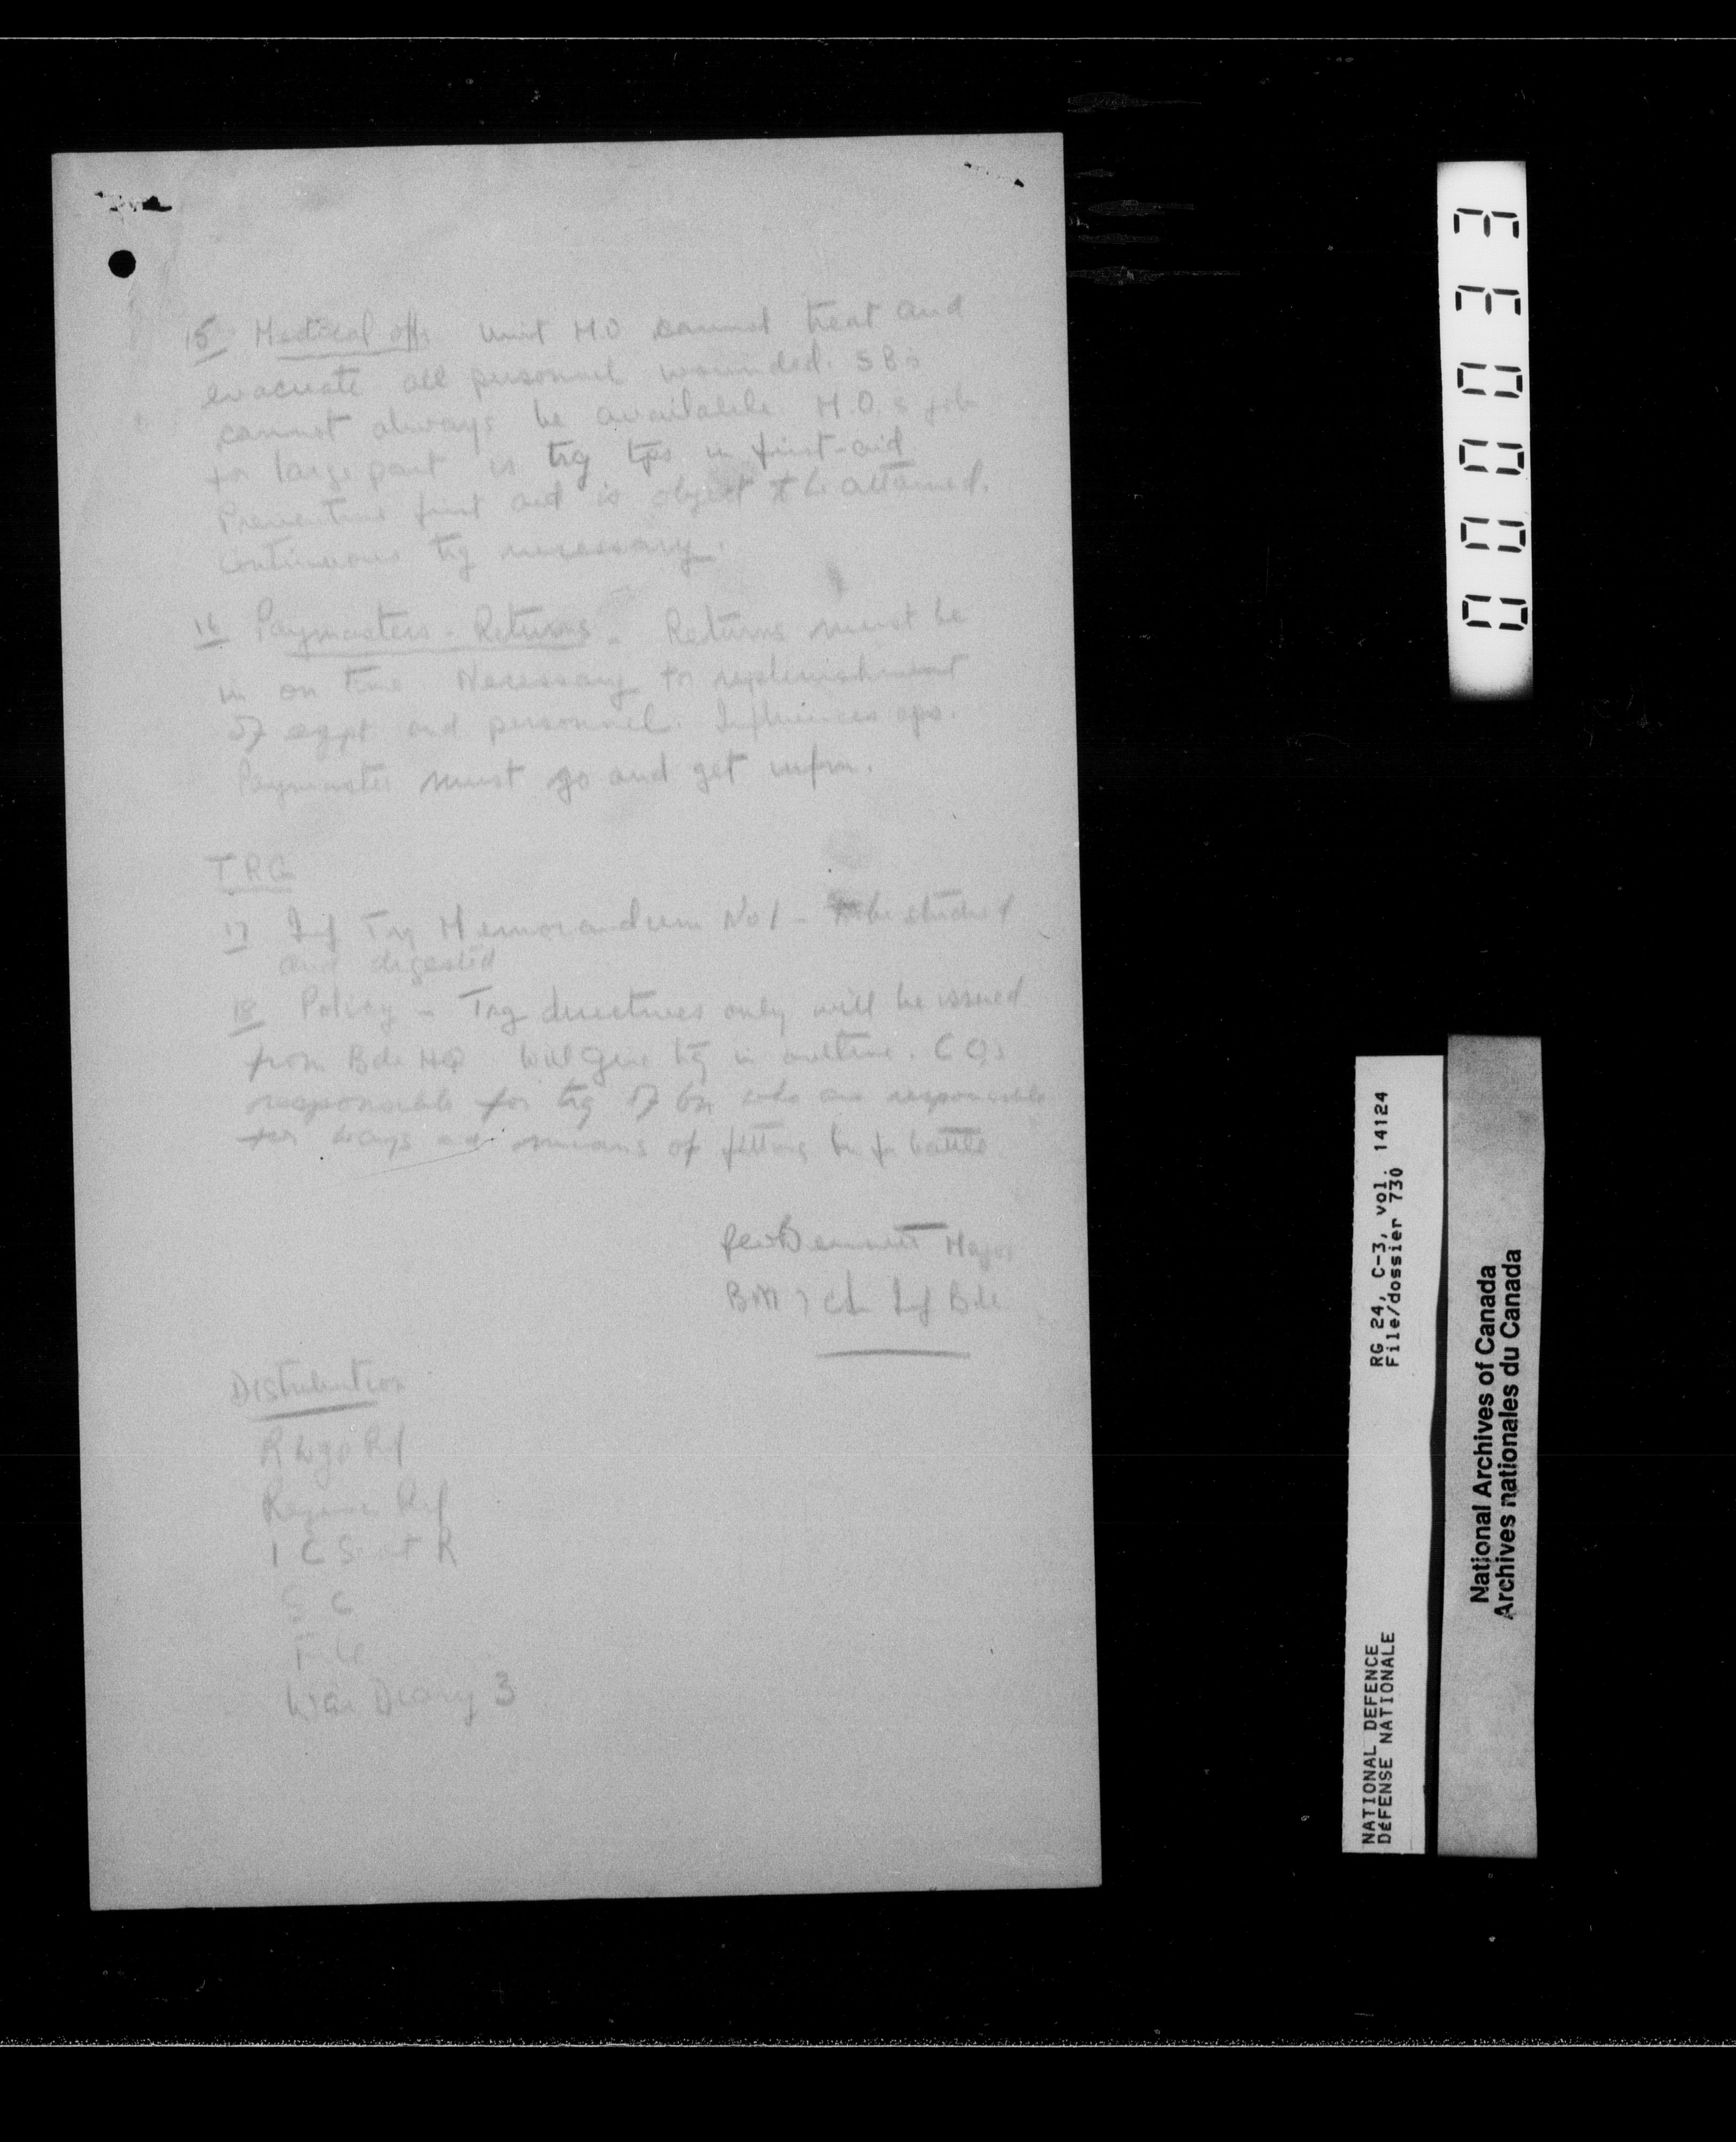 15 Medical offs Unit M.O cannot treat and
evacuate all personnel wounded. SBs
cannot always be available M.O.s job
for large part is trg tps in first-aid
Preventive first aid is object to be attained.
Continuous trg necessary.
16 Paymasters - Returns - Returns must be
in on time Necessary to replenishment
of eqpt and personnel. Influences ops.
Paymaster must go and get infm.
TRG
17 Inf Trg Memorandum No 1 - be studied
and digested
18 Policy - Trg directives only will be issued
from Bde HQ Will give trg in outline. COs
responsible for trg of bn who are responsible
for ways and means of fitting bn for battle
Major
BM 7 Cdn Inf Bde
Distribution
R Wpg Rif
Regina Rif
1 C Scot R
File
War Diary 3
000033
RG 24, C-3, vol. 14124
File/dossier 730
NATIONAL DEFENCE
DÉFENSE NATIONALE
National Archives of Canada
Archives nationales du Canada